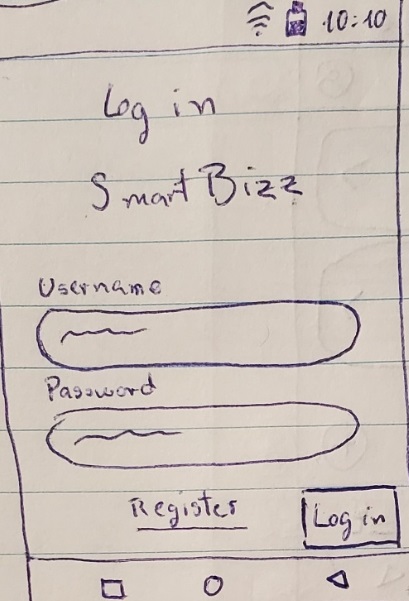 10:10
Log in
Smart Bizz
Username
Password
Register Log in